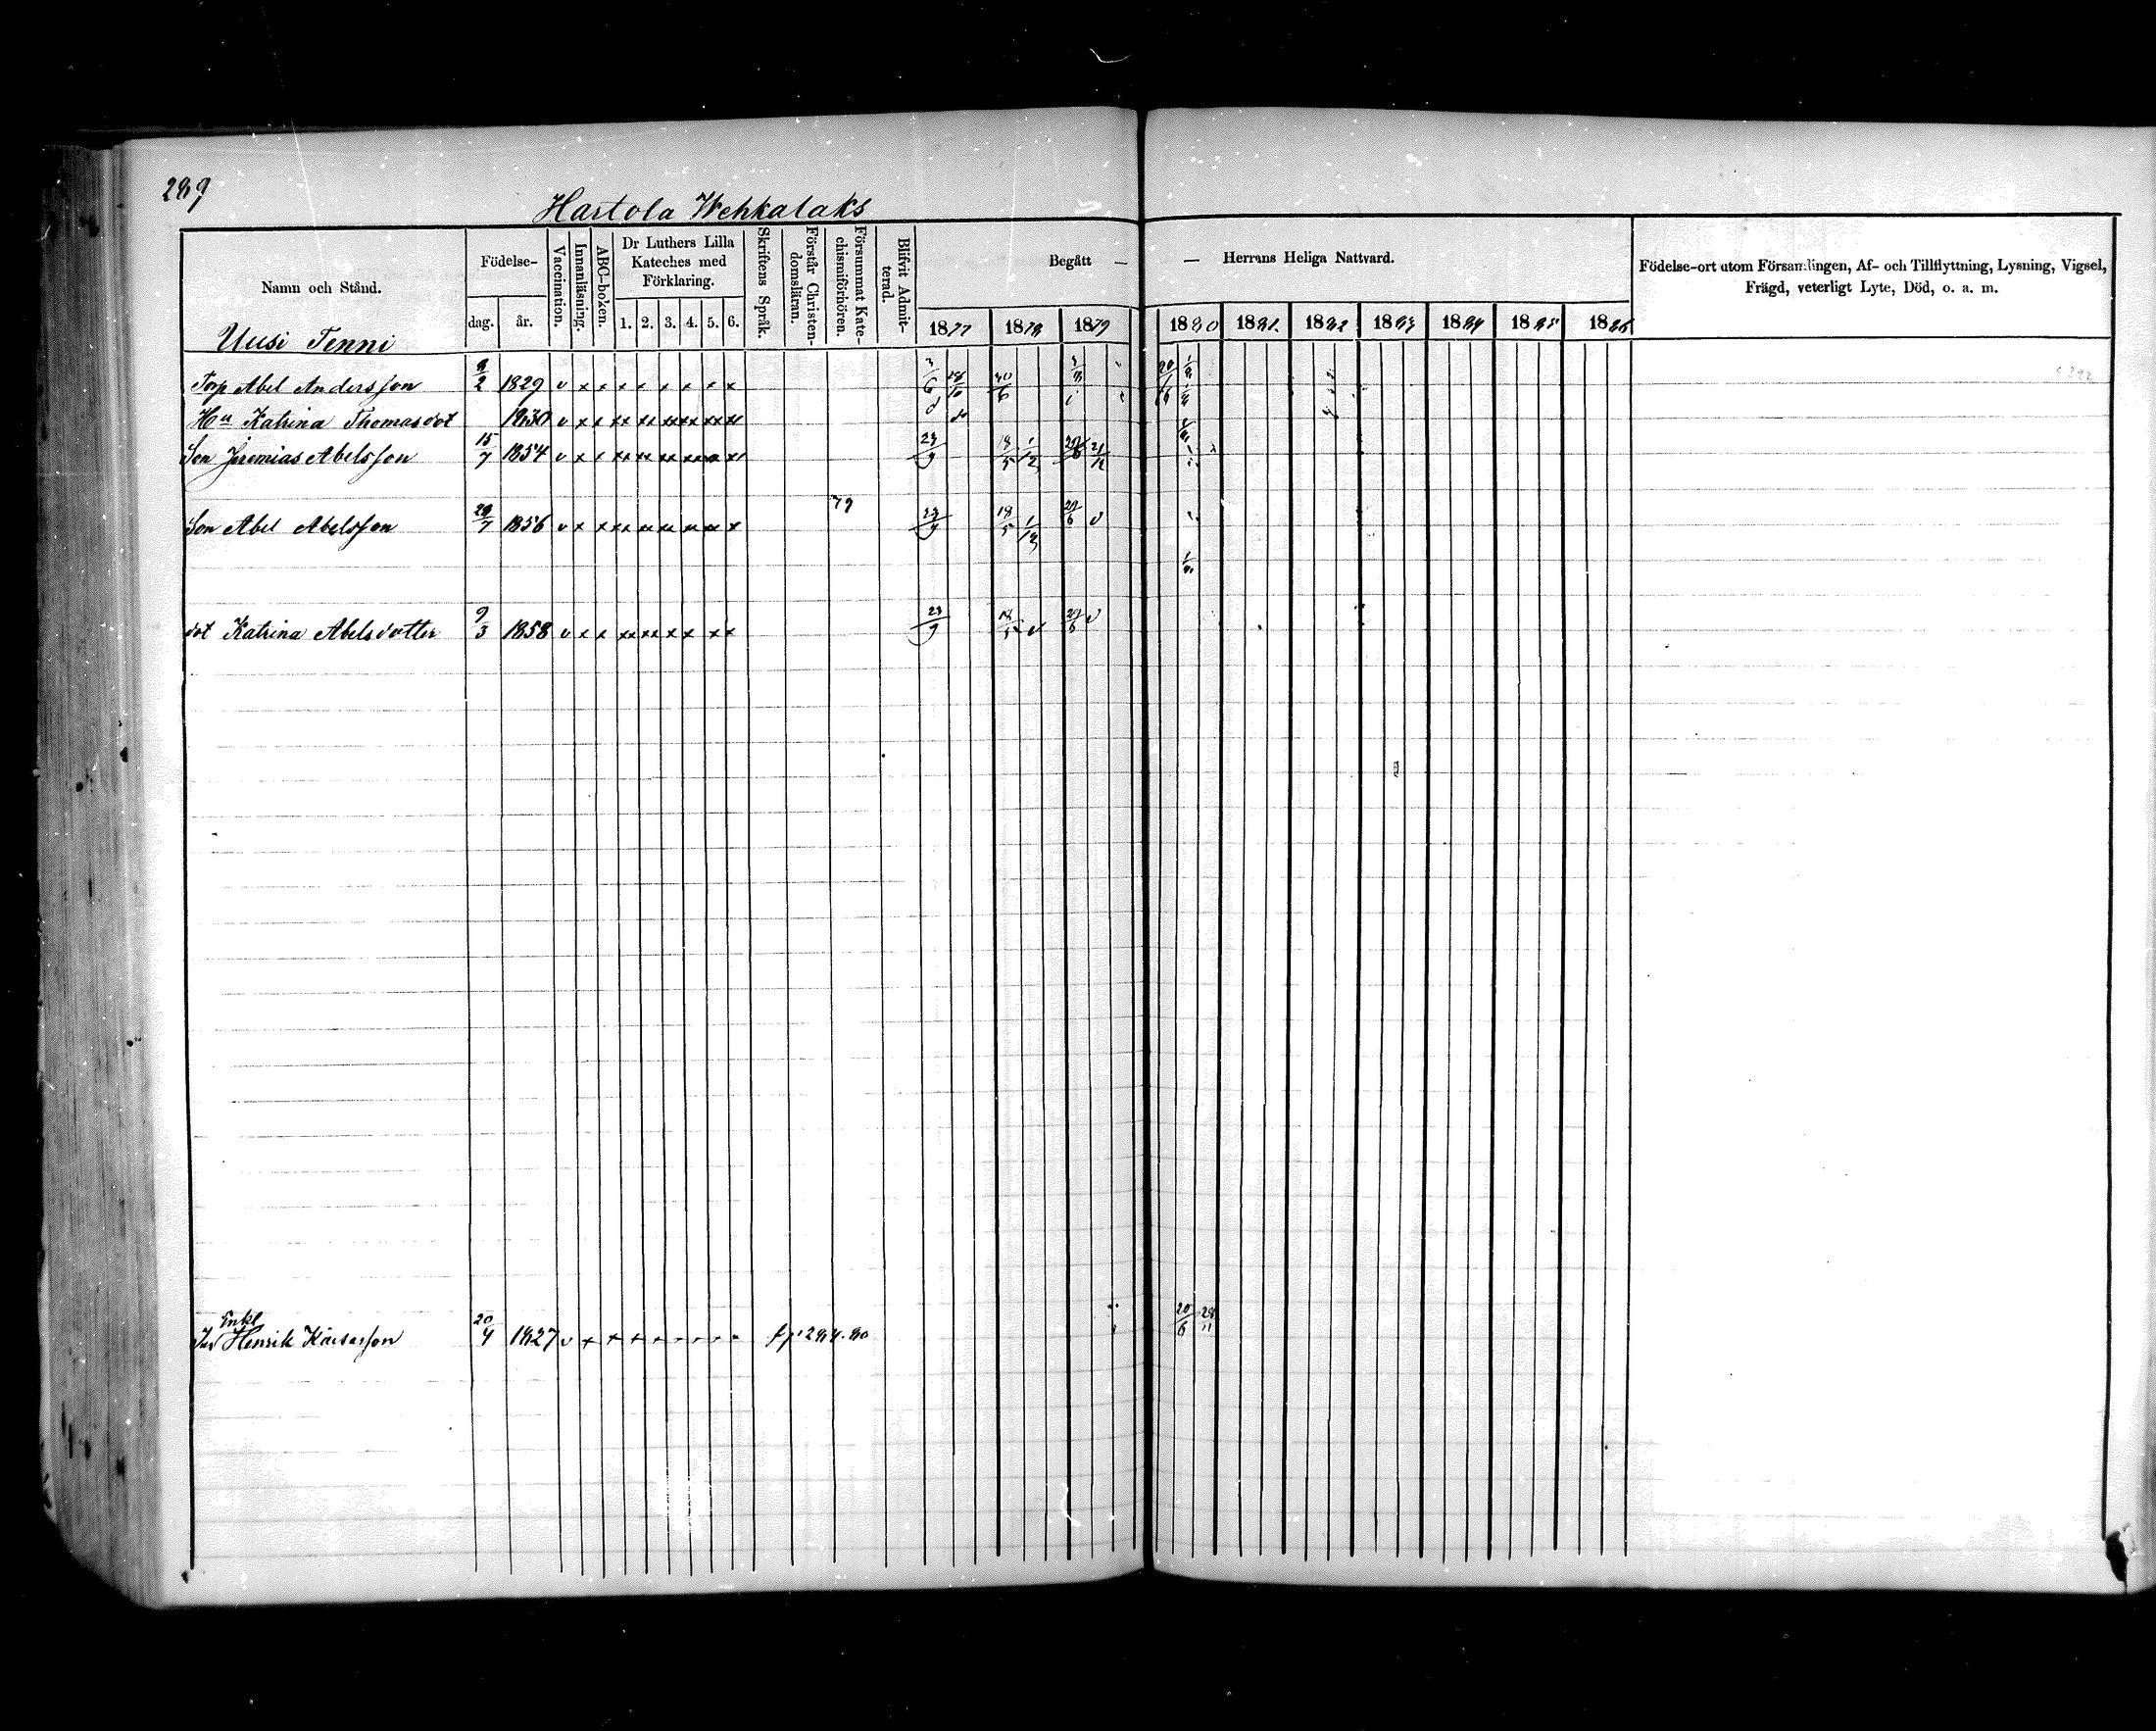 289
Hartola Wehkalaks
Namn och Stånd.
Födelse-
dag. år.
Vaccination.
Innanläsning.
ABC-boken.
Dr Luthers Lilla
Kateches med
Förklaring.
1. 2. 3. 4. 5. 6.
Skriftens Språk.
Förstår Christen-
domsläran.
Försummat Kate-
chismiförhören.
Blifvit Admit-
terad.
Begått — — Herrans Heliga Nattvard.
1877 1878 1879 1880 1881. 1882 1883 1884 1885 1886
Födelse-ort utom Församlingen, Af- och Tillflyttning, Lysning, Vigsel,
Frägd, veterligt Lyte, Död, o. a. m.
Uusi Tenni
Torp Abel Andersson 9/2 1829 v x x x x x x x x
Hu Katrina Thomasdot 1830 v x x xx xx xx xx xx xx
Son Jeremias Abelsson 15/7 1854 v x x xx xx xx xx xx xx 23/9 18/5 1/12 29/6 21/12
79
Son Abel Abelsson 29/7 1856 v x x xx xx xx xx xx x 23/9 18/5 1/12 29/6 v
dot Katrina Abelsdotter 9/3 1858 v x x xx xx xx xx 23/9 18/5 v 29/6 v
Enkl
Henrik Kaisasson 20/4 1827 v x x x 284.80 20/6 28/11